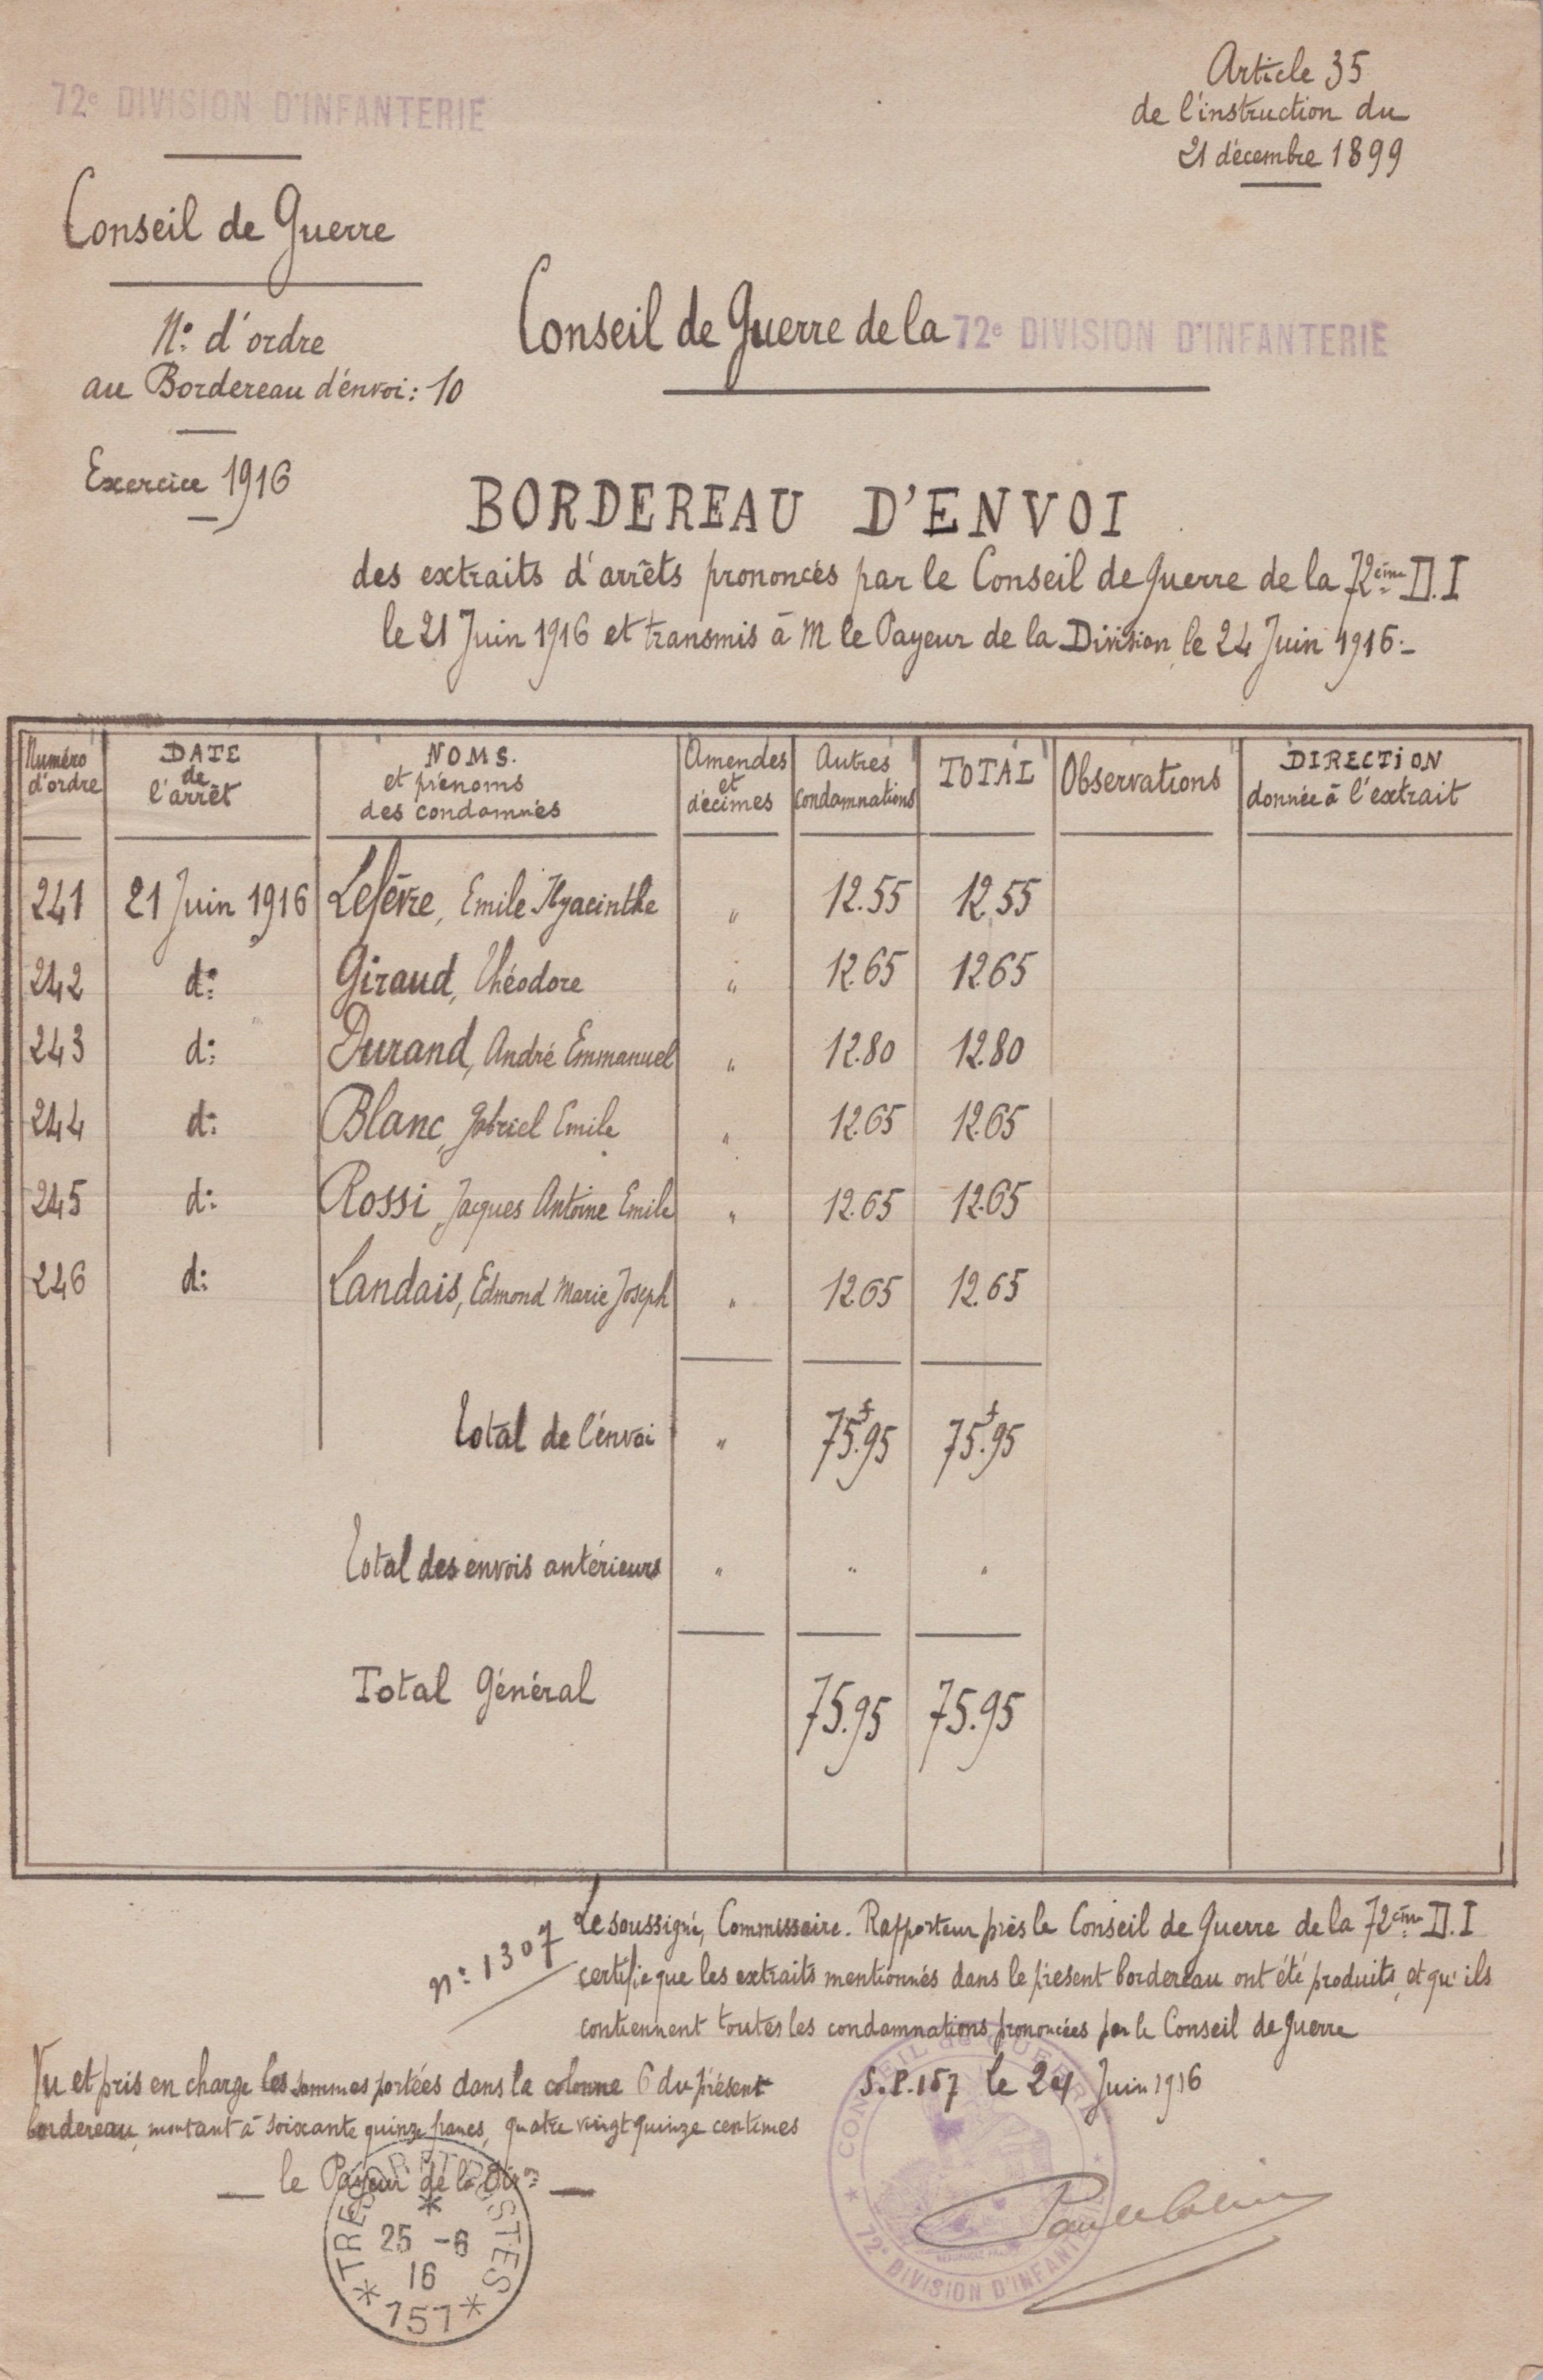 72e DIVISION D'INFANTERIE
Conseil de Guerre
N° d'ordre
au Bordereau d'énvoi : 10
Exercice 1916
Article 35
de l'instruction du
21 décembre 1899
Conseil de Guerre de la 72e DIVISION D'INFANTERIE
BORDEREAU D'ENVOI
des extraits d'arrêts prononcés par le Conseil de Guerre de la 72ème D.I
le 21 Juin 1916 et transmis à M le Payeur de la Division le 24 Juin 1916.-
Numéro d'ordre | DATE de l'arrêt | NOMS. et prénoms des condamnés | Amendes et décimes | Autres condamnations | TOTAL | Observations | DIRECTION donnée à l'extrait
241 21 Juin 1916 Lefèvre, Emile Hyacinthe " 12.55 12.55
242 d° Giraud, Théodore " 12.65 12.65
243 d° Durand, André Emmanuel " 12.80 12.80
244 d° Blanc, Gabriel Emile " 12.65 12.65
245 d° Rossi, Jacques Antoine Emile " 12.65 12.65
246 d° Landais, Edmond Marie Joseph " 12.65 12.65
Total de l'énvoi " 75f.95 75f.95
Total des envois antérieurs " " "
Total Général 75.95 75.95
n° 1307
Le soussigné, Commissaire. Rapporteur près le Conseil de Guerre de la 72ème D.I
certifie que les extraits mentionnés dans le présent bordereau ont été produits, et qu'ils
contiennent toutes les condamnations prononcées par le Conseil de Guerre
S.P.157 le 24 Juin 1916
Vu et pris en charge les sommes portées dans la colonne 6 du présent
bordereau, montant à soixante quinze francs, quatre vingt quinze centimes
le Payeur de la Don
TRESOR ET POSTES
25 -6
16
* 157 *
CONSEIL de GUERRE
72e DIVISION D'INFANTERIE